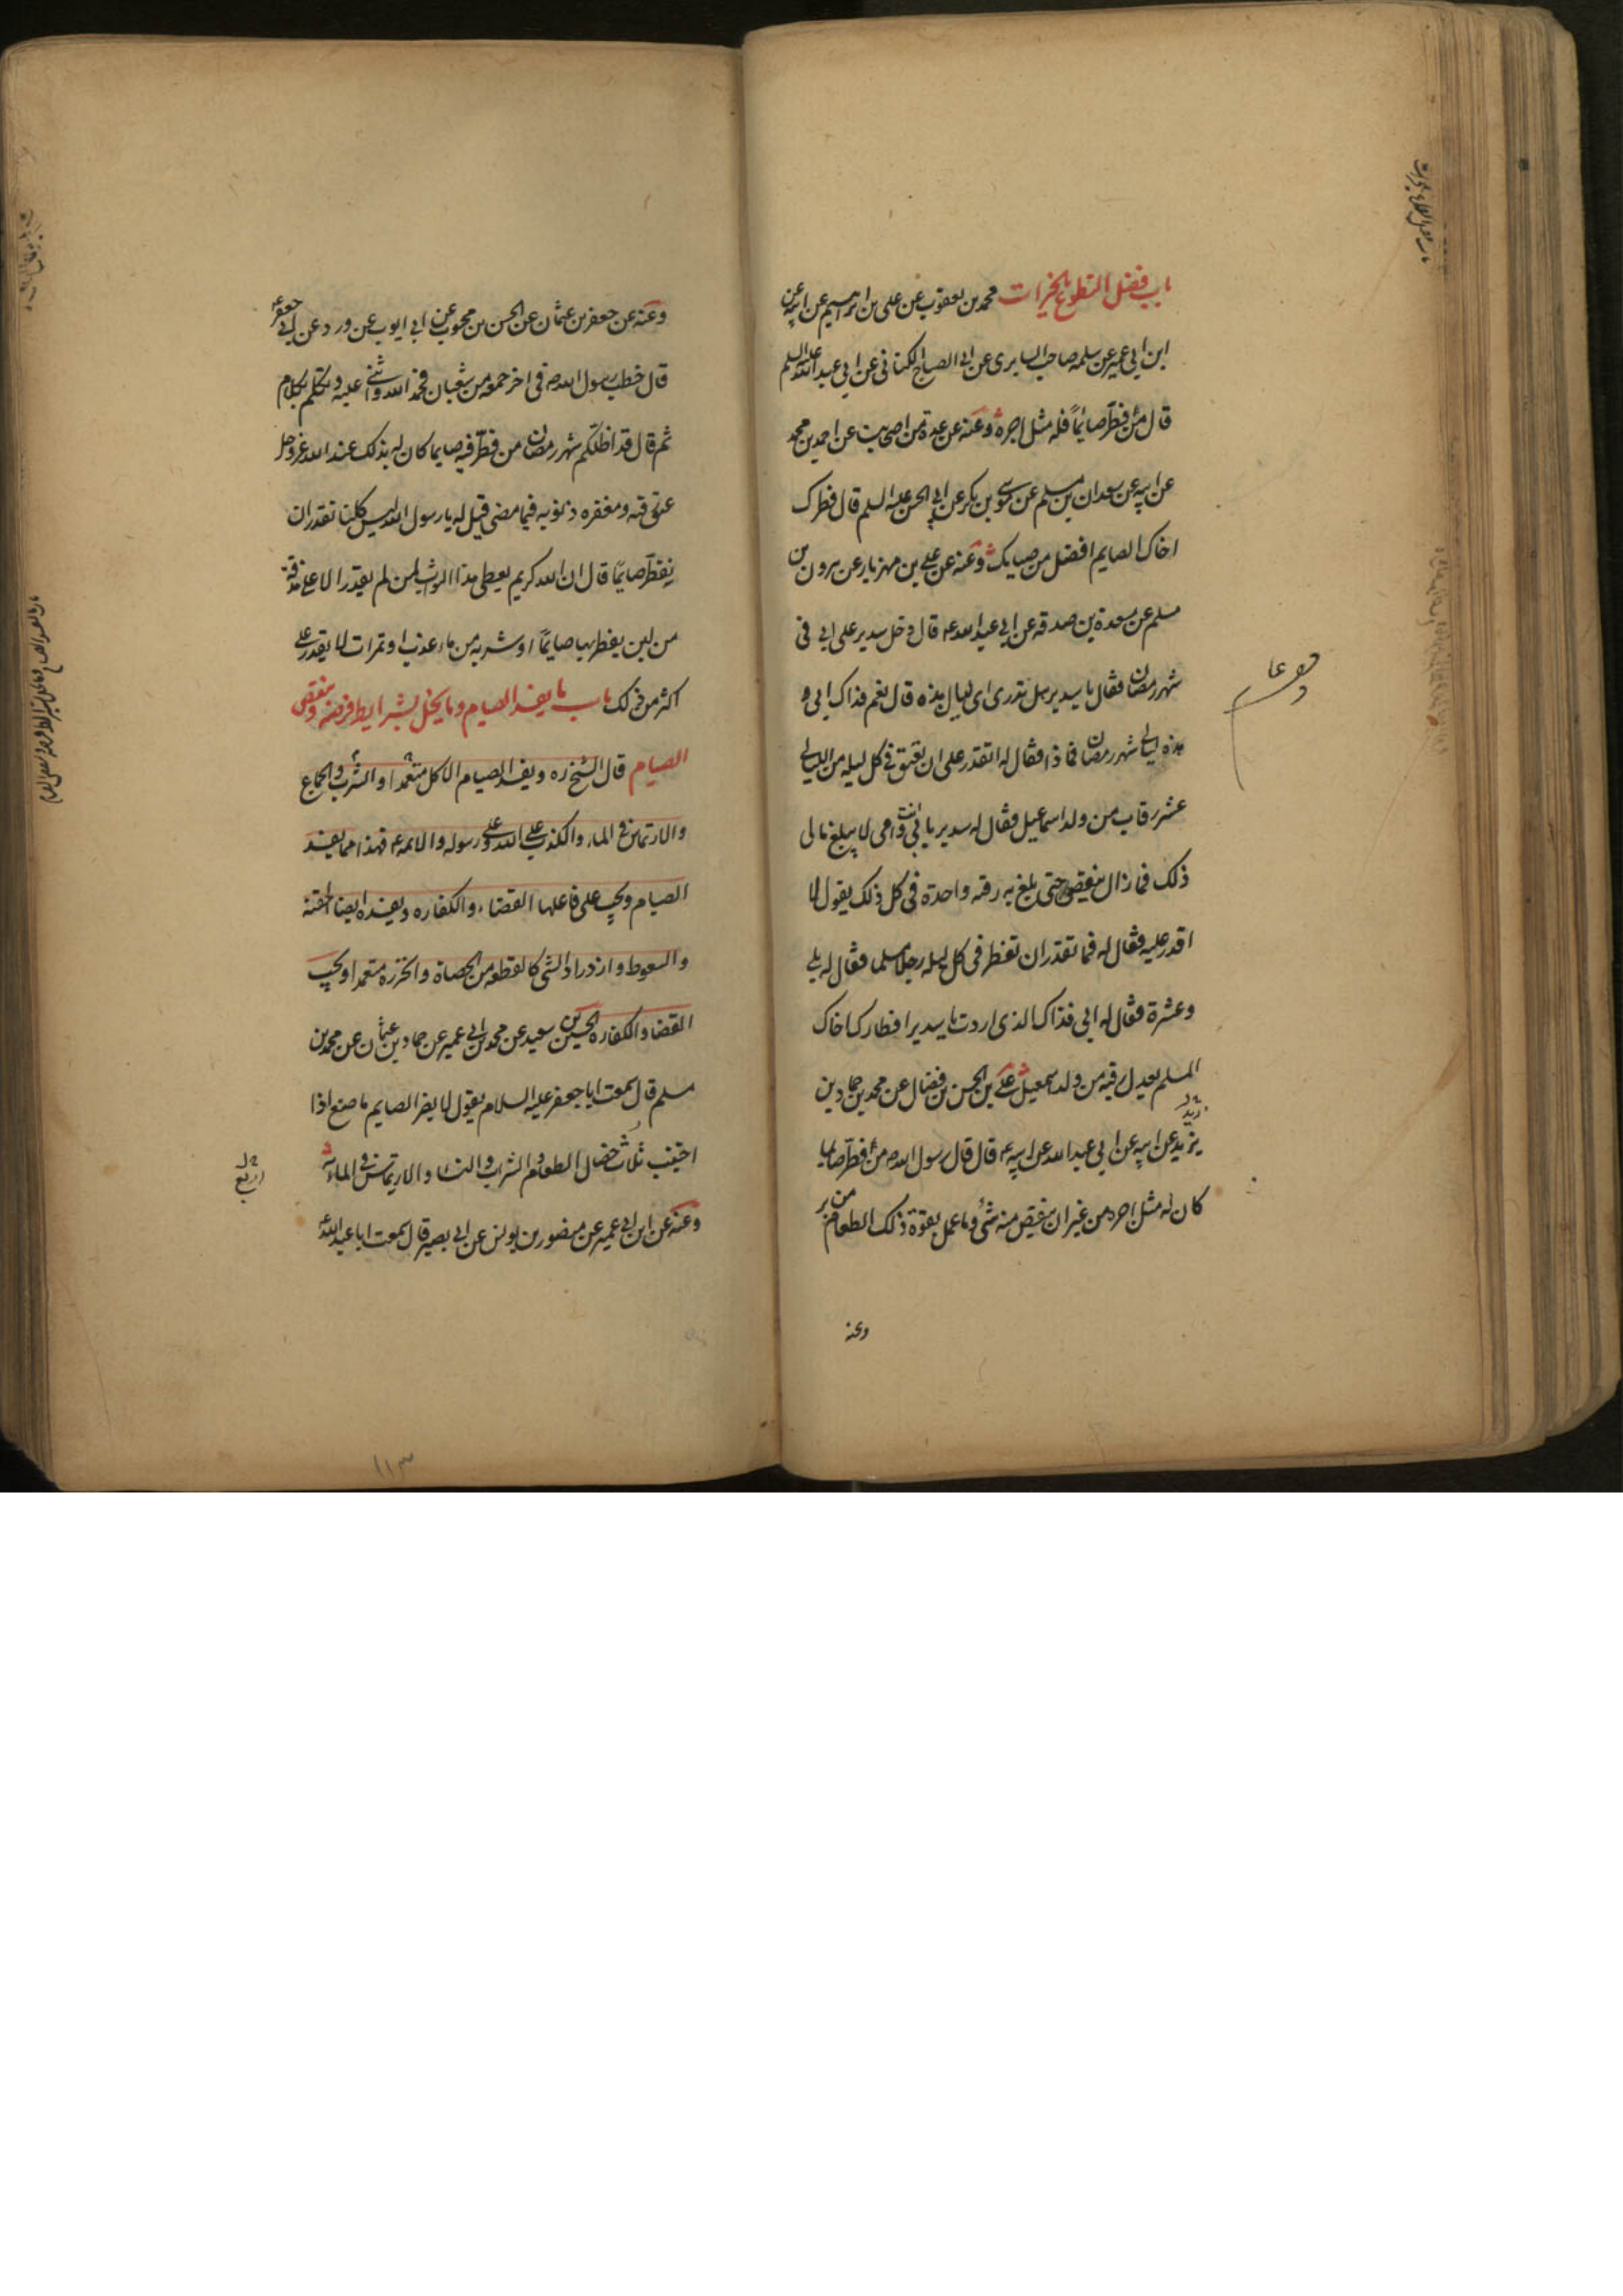 باب فضل التطوع بالخيرات محمد بن يعقوب عن على بن ابراهيم عن ابيه عن
ابن ابي عمير عن سلمه صاحب السابرى عن ابى الصباح الكنانى عن ابى عبد الله عليه السلم
قال من فطّر صائماً فله مثل اجره وعنه عن عدة من اصحابنا عن احمد بن محمد
عن ابيه عن سعدان بن مسلم عن موسى بن بكر عن ابى الحسن عليه السلم قال فطرك
اخاك الصايم افضل من صيامك وعنه عن على بن مهزيار عن هرون بن
مسلم عن مسعدة بن صدقه عن ابى عبد الله ع قال دخل سدير على ابى فى
شهر رمضان فقال يا سدير هل تدرى اى ليال هذه قال نعم فداك ابى و
هذه ليالى شهر رمضان فما ذا فقال له اتقدر على ان تعتق فى كل ليله من الليالى
عشر رقاب من ولد اسماعيل فقال له سدير بابى انت وامى لا يبلغ مالى
ذلك فما زال ينقص حتى بلغ به رقبه واحدة فى كل ذلك يقول لا
اقدر عليه فقال له فما تقدر ان تفطر فى كل ليله رجلا مسلما فقال له بلى
وعشرة فقال له ابى فذاك الذى اردت يا سدير افطارك اخاك
المسلم يعدل رقبه من ولد اسمعيل على بن الحسن بن فضال عن محمد بن حماد بن
يزيد عن ابيه عن ابى عبد الله عن ابيه ع قال قال رسول الله ص من فطّر صايما
كان له مثل اجره من غير ان ينقص منه شئ وما عمل بقوة ذلك الطعام من بر
وعنه
وعنه عن جعفر بن عثمان عن الحسن بن محبوب عن ابى ايوب عن ورد عن ابى جعفر ع
قال خطب رسول الله ص فى اخر جمعه من شعبان فحمد الله واثنى عليه وتكلم بكلام
ثم قال قد اظلّكم شهر رمضان من فطّر فيه صايما كان له بذلك عند الله عز وجل
عتق رقبه ومغفره ذنوبه فيما مضى قيل له يا رسول الله ليس كلنا نقدر ان
نفطّر صايمًا قال ان الله كريم يعطى هذا الثواب لمن لم يقدر الا على مذقة
من لبن يفطر بها صايمًا او شربه من ماء عذب او تمرات لا يقدر على
اكثر من ذلك باب ما يفسد الصيام وما يخل بشرايط فرضه وينقض
الصيام قال الشيخ ره ويفسد الصيام الاكل متعمدا والشرب والجماع
والارتماس فى الماء والكذب على الله وعلى رسوله والائمه ع فهذا مما يفسد
الصيام ويجب على فاعلها القضاء والكفاره ويفسده ايضا الحقنه
والسعوط وازدراد الشى كالقطعه من الحصاة والخرزه متعمدا ويجب
القضا والكفاره الحسين بن سعيد عن محمد بن ابى عمير عن حماد بن عثمان عن محمد بن
مسلم قال سمعت ابا جعفر عليه السلام يقول لا يضر الصايم ما صنع اذا
اجتنب ثلاث خصال الطعام والشراب والنساء والارتماس فى الماء
اربع
وعنه عن ابن ابى عمير عن منصور بن يونس عن ابى بصير قال سمعت ابا عبد الله ع
١١٣